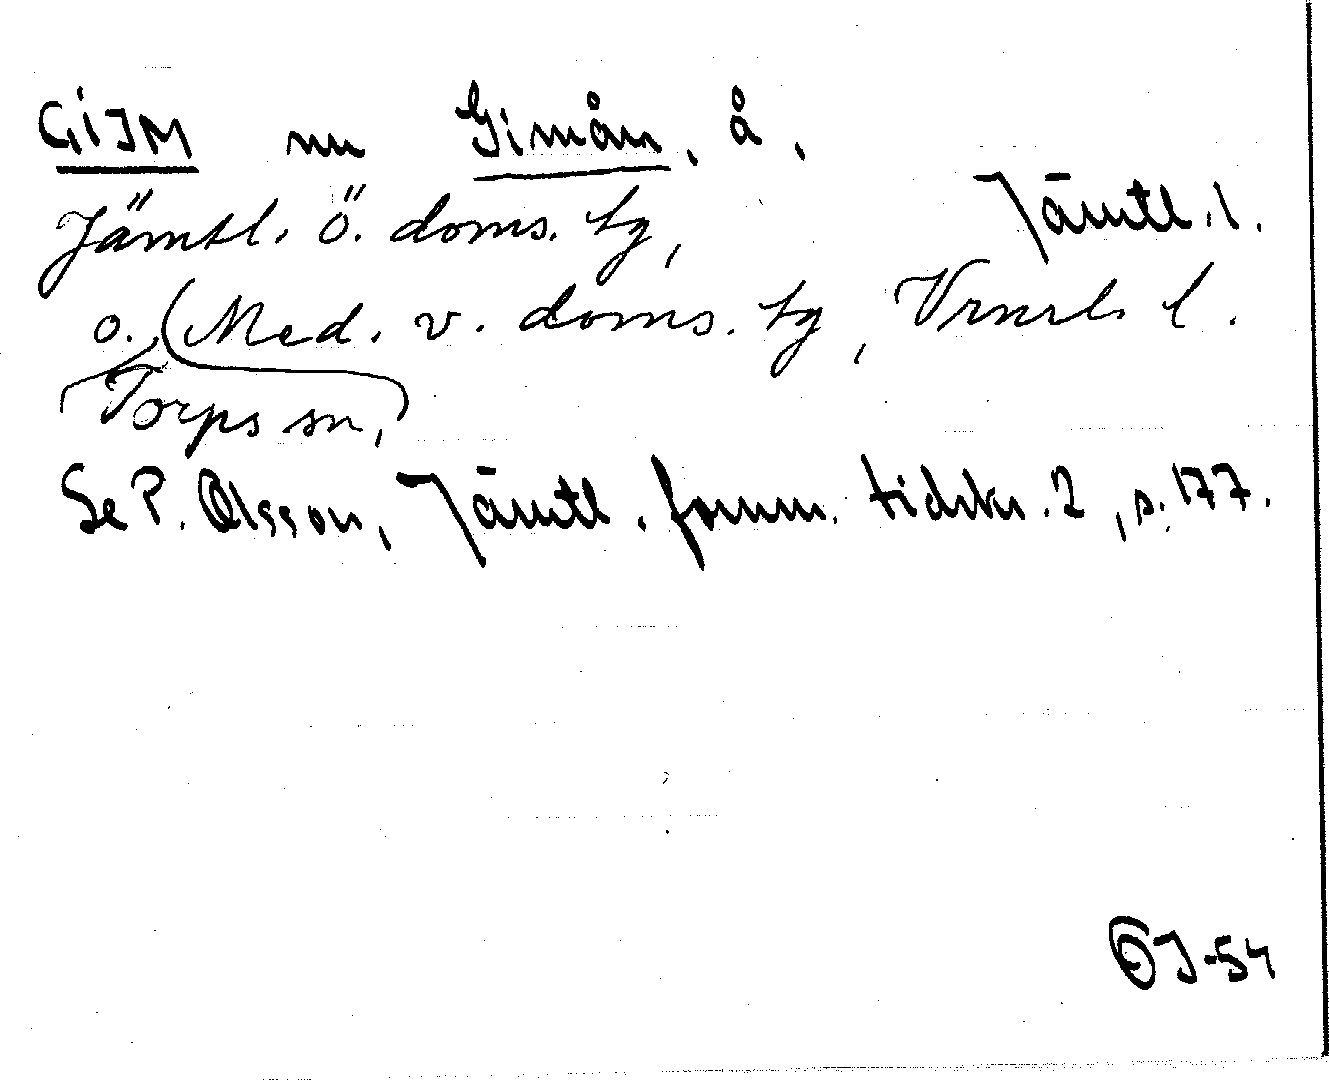 GIJM nu Gimån, å,
Jämtl. ö. doms. tg, Jämtl. l.
o. (Med. v. doms. tg, Vrnrl. l.
Torps sn,)
Se P. Olsson, Jämtl. fornm. tidskr. 2, s. 177.
OJ-54